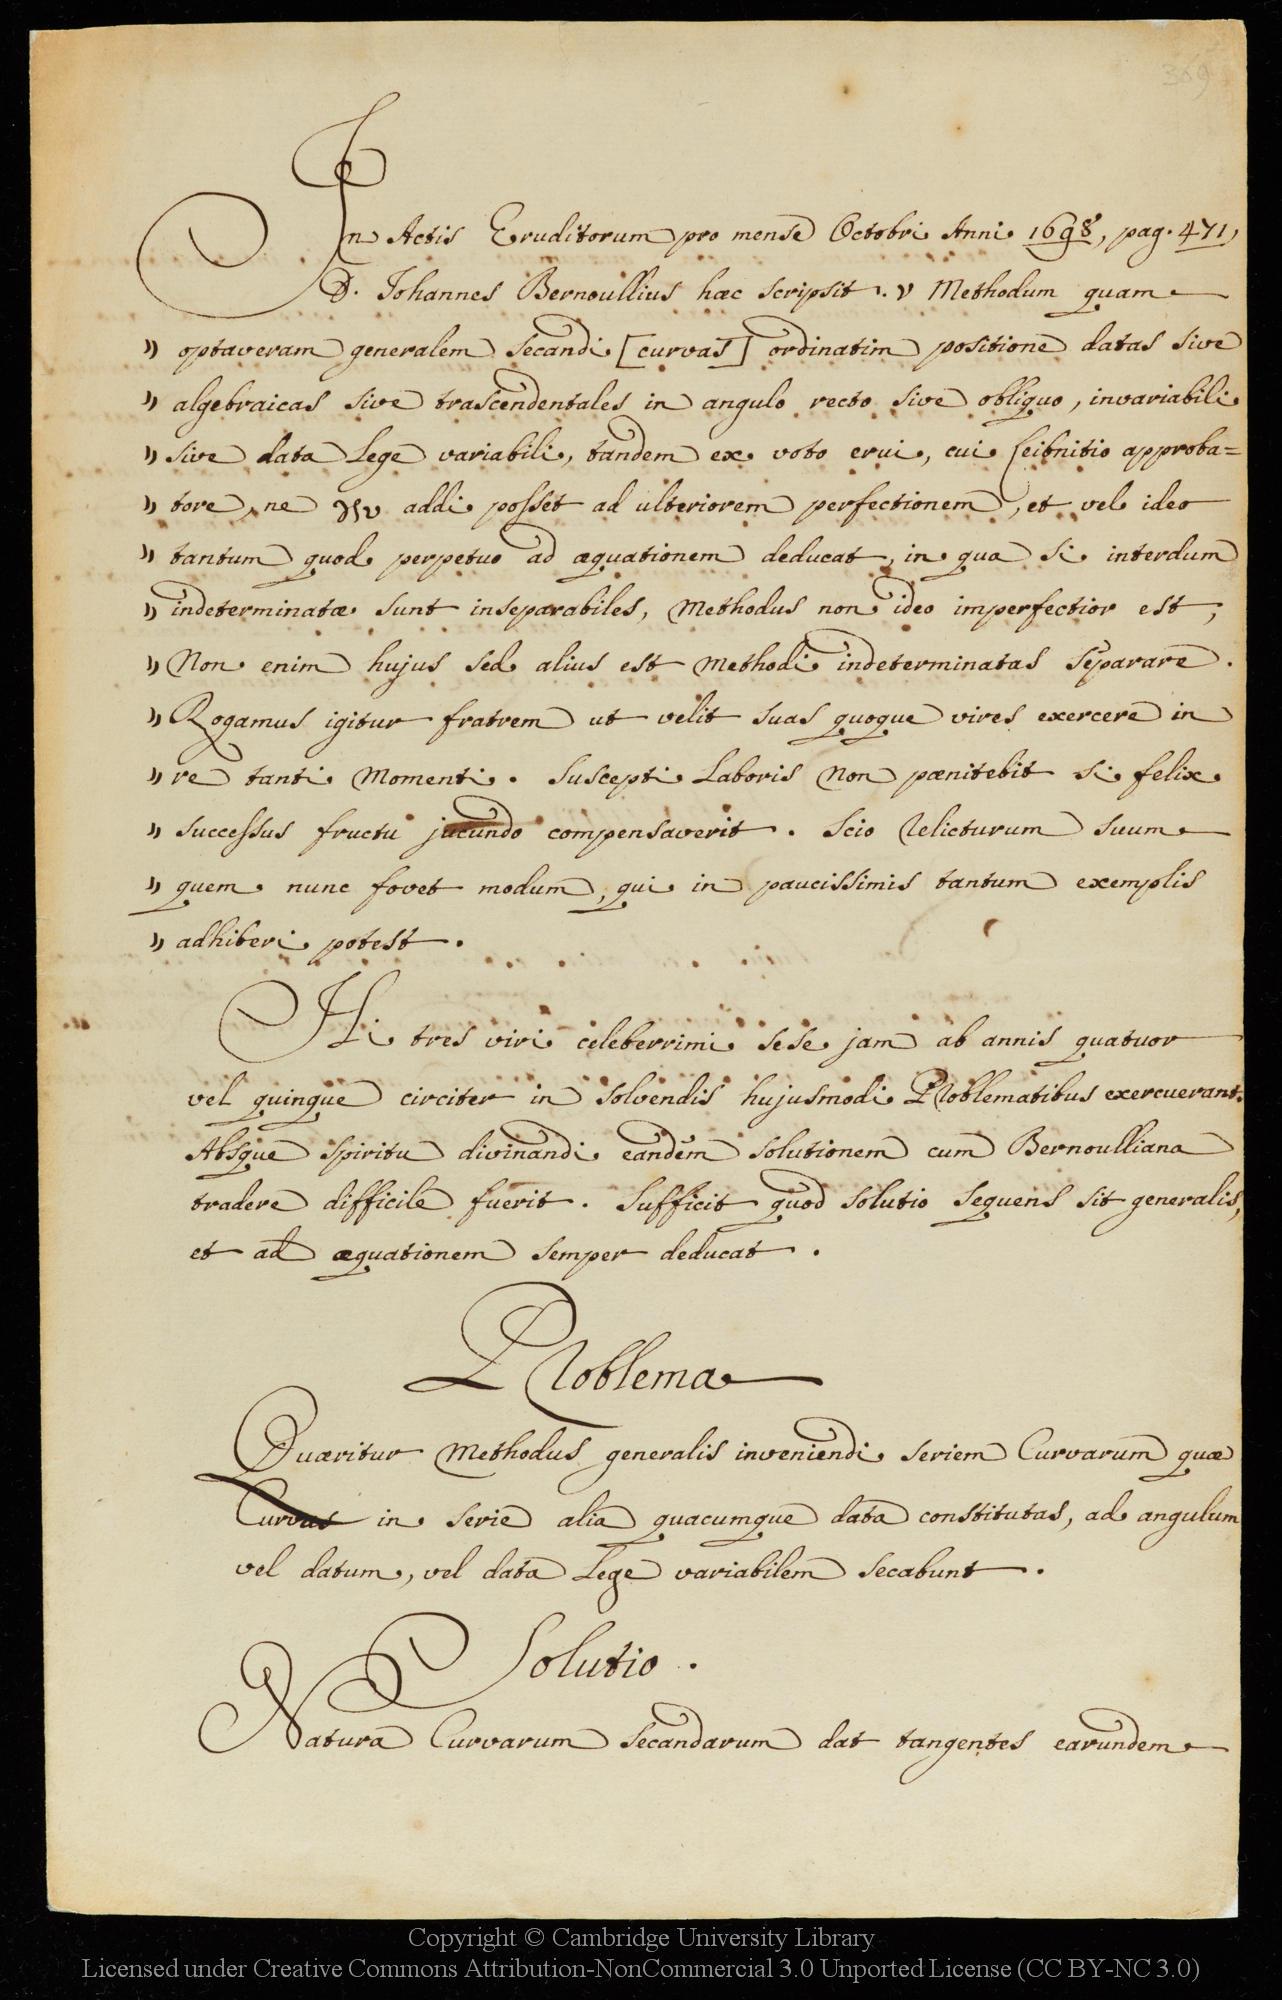 369
In Actis Eruditorum pro mense Octobri Anni 1698, pag. 471,
D. Johannes Bernoullius hæc scripsit. Methodum quam
" optaveram generalem secandi [curvas] ordinatim positione datas sive
" algebraicas sive trascendentales in angulo recto sive obliquo, invariabili
" sive data Lege variabili, tandem ex voto erui, cui Leibnitio approba=
" tore, ne γρυ addi posset ad ulteriorem perfectionem, et vel ideo
" tantum quod perpetuo ad æquationem deducat, in qua si interdum
" indeterminatæ sunt inseparabiles, Methodus non ideo imperfectior est,
" Non enim hujus sed alius est Methodi indeterminatas separare.
" Rogamus igitur fratrem ut velit suas quoque vires exercere in
" re tanti Momenti. Suscepti Laboris Non pænitebit si felix
" successus fructu jucundo compensaverit. Scio Relicturum suum
" quem nunc fovet modum, qui in paucissimis tantum exemplis
" adhiberi potest.
Hi tres viri celeberrimi sese jam ab annis quatuor
vel quinque circiter in solvendis hujusmodi Problematibus exercuerant.
Absque spiritu divinandi eandem solutionem cum Bernoulliana
tradere difficile fuerit. Sufficit quod solutio sequens sit generalis,
et ad æquationem semper deducat.
Problema
Quæritur Methodus generalis inveniendi seriem Curvarum quæ
Curvas in serie alia quacumque data constitutas, ad angulum
vel datum, vel data Lege variabilem secabunt.
Solutio.
Natura Curvarum secandarum dat tangentes earundem
Copyright © Cambridge University Library
Licensed under Creative Commons Attribution-NonCommercial 3.0 Unported License (CC BY-NC 3.0)